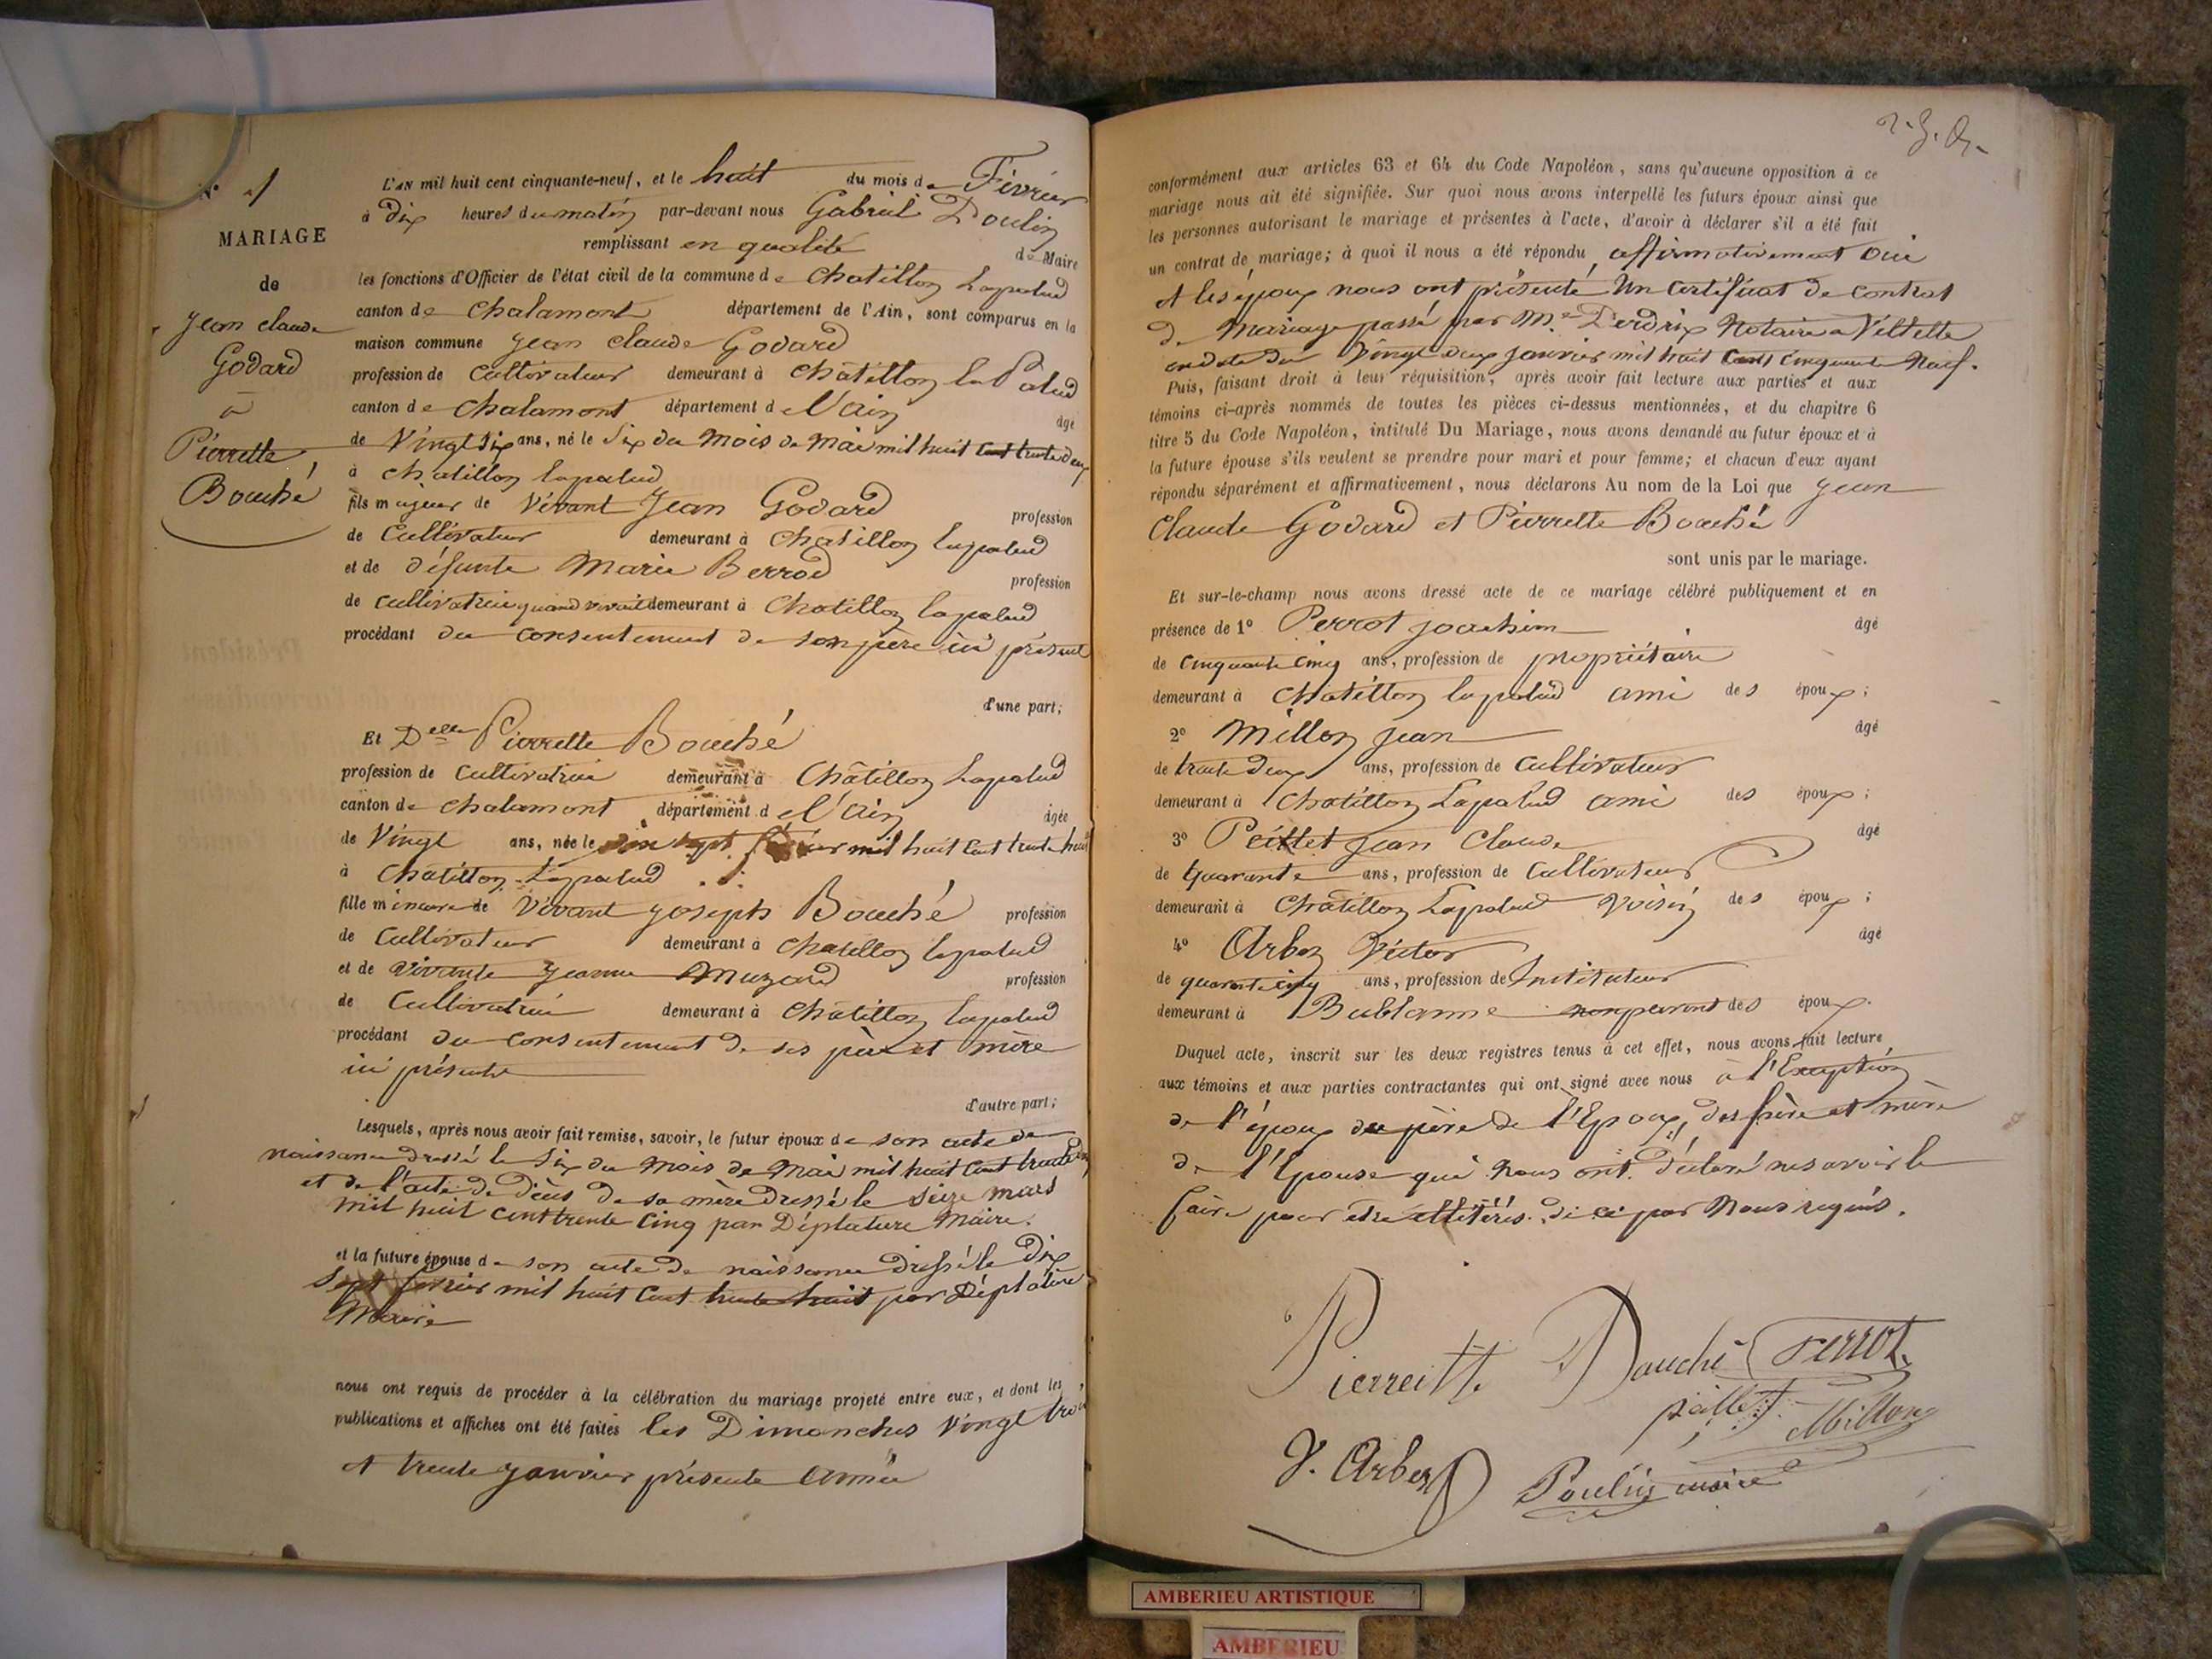 N° 1
MARIAGE
de
Jean claude
Godard
à
Pierrette
Bouché
L'AN mil huit cent cinquante-neuf, et le huit du mois de Février
à Dix heures du matin par-devant nous Gabriel Poulin
remplissant en qualité de Maire
les fonctions d'Officier de l'état civil de la commune de Chatillon Lapalud
canton de Chalamont département de l'Ain, sont comparus en la
maison commune Jean claude Godard
profession de Cultivateur demeurant à Châtillon la Palud
canton de Chalamont département de l'ain âgé
de Vingt six ans, né le Six du Mois de Mai mil huit Cent trente deux
à Chatillon lapalud
fils majeur de Vivant Jean Godard profession
de Cultivateur demeurant à Chatillon lapalud
et de défunte Marie Berrod profession
de cultivatrice quand vivait demeurant à Chatillon lapalud
procédant du consentement de son père ici présent
d'une part;
Et Delle Pierrette Bouché
profession de Cultivatrice demeurant à Châtillon Lapalud
canton de Chalamont département de l'Ain âgée
de Vingt ans, née le dix sept février mil huit Cent trente huit
à Chatillon Lapalud
fille mineure de Vivant Joseph Bouché profession
de Cultivateur demeurant à Chatillon lapalud
et de Vivante Jeanne Muzard profession
de Cultivatrice demeurant à Châtillon lapalud
procédant du consentement de ses père et mère
ici présents
d'autre part;
Lesquels, après nous avoir fait remise, savoir, le futur époux de son acte de
naissance dressé le Six du Mois de Mai mil huit Cent trente deux
et de l'acte de décès de sa mère dressé le Seize mars
mil huit cent trente Cinq par Déplature Maire.
et la future épouse de son acte de naissance dressé le Dix
Sept février mil huit Cent trente huit par Déplature
Maire
nous ont requis de procéder à la célébration du mariage projeté entre eux, et dont les
publications et affiches ont été faites les Dimanches Vingt trois
et trente Janvier présente année
conformément aux articles 63 et 64 du Code Napoléon, sans qu'aucune opposition à ce
mariage nous ait été signifiée. Sur quoi nous avons interpellé les futurs époux ainsi que
les personnes autorisant le mariage et présentes à l'acte, d'avoir à déclarer s'il a été fait
un contrat de mariage; à quoi il nous a été répondu affirmativement Oui
et les époux nous ont présenté Un Certificat de contrat
de Mariage passé par Me Perdrix Notaire a Villette
en date du Vingt deux Janvier mil huit Cent Cinquante Neuf.
Puis, faisant droit à leur réquisition, après avoir fait lecture aux parties et aux
témoins ci-après nommés de toutes les pièces ci-dessus mentionnées, et du chapitre 6
titre 5 du Code Napoléon, intitulé Du Mariage, nous avons demandé au futur époux et à
la future épouse s'ils veulent se prendre pour mari et pour femme; et chacun d'eux ayant
répondu séparément et affirmativement, nous déclarons Au nom de la Loi que Jean
Claude Godard et Pierrette Bouché
sont unis par le mariage.
Et sur-le-champ nous avons dressé acte de ce mariage célébré publiquement et en
présence de 1° Perrot Joachim âgé
de cinquante cinq ans, profession de propriétaire
demeurant à Chatillon lapalud ami des époux;
2° Millon Jean âgé
de trente deux ans, profession de Cultivateur
demeurant à Chatillon Lapalud ami des époux;
3° Peillet Jean Claude âgé
de Quarante ans, profession de Cultivateur
demeurant à Chatillon Lapalud Voisin des époux;
4° Arbez Victor âgé
de quarante cinq ans, profession de Instituteur
demeurant à Bublanne non parent des époux.
Duquel acte, inscrit sur les deux registres tenus à cet effet, nous avons fait lecture
aux témoins et aux parties contractantes qui ont signé avec nous à l'Exception
de l'époux du père de l'Epoux, des père et mère
de l'Epouse qui Nous ont déclaré ne savoir le
faire pour etre illitérés. de ce par Nous requis.
Pierrette Bouché Perrot
peillet Millon
V. Arbez Poulin maire
AMBERIEU ARTISTIQUE
AMBERIEU